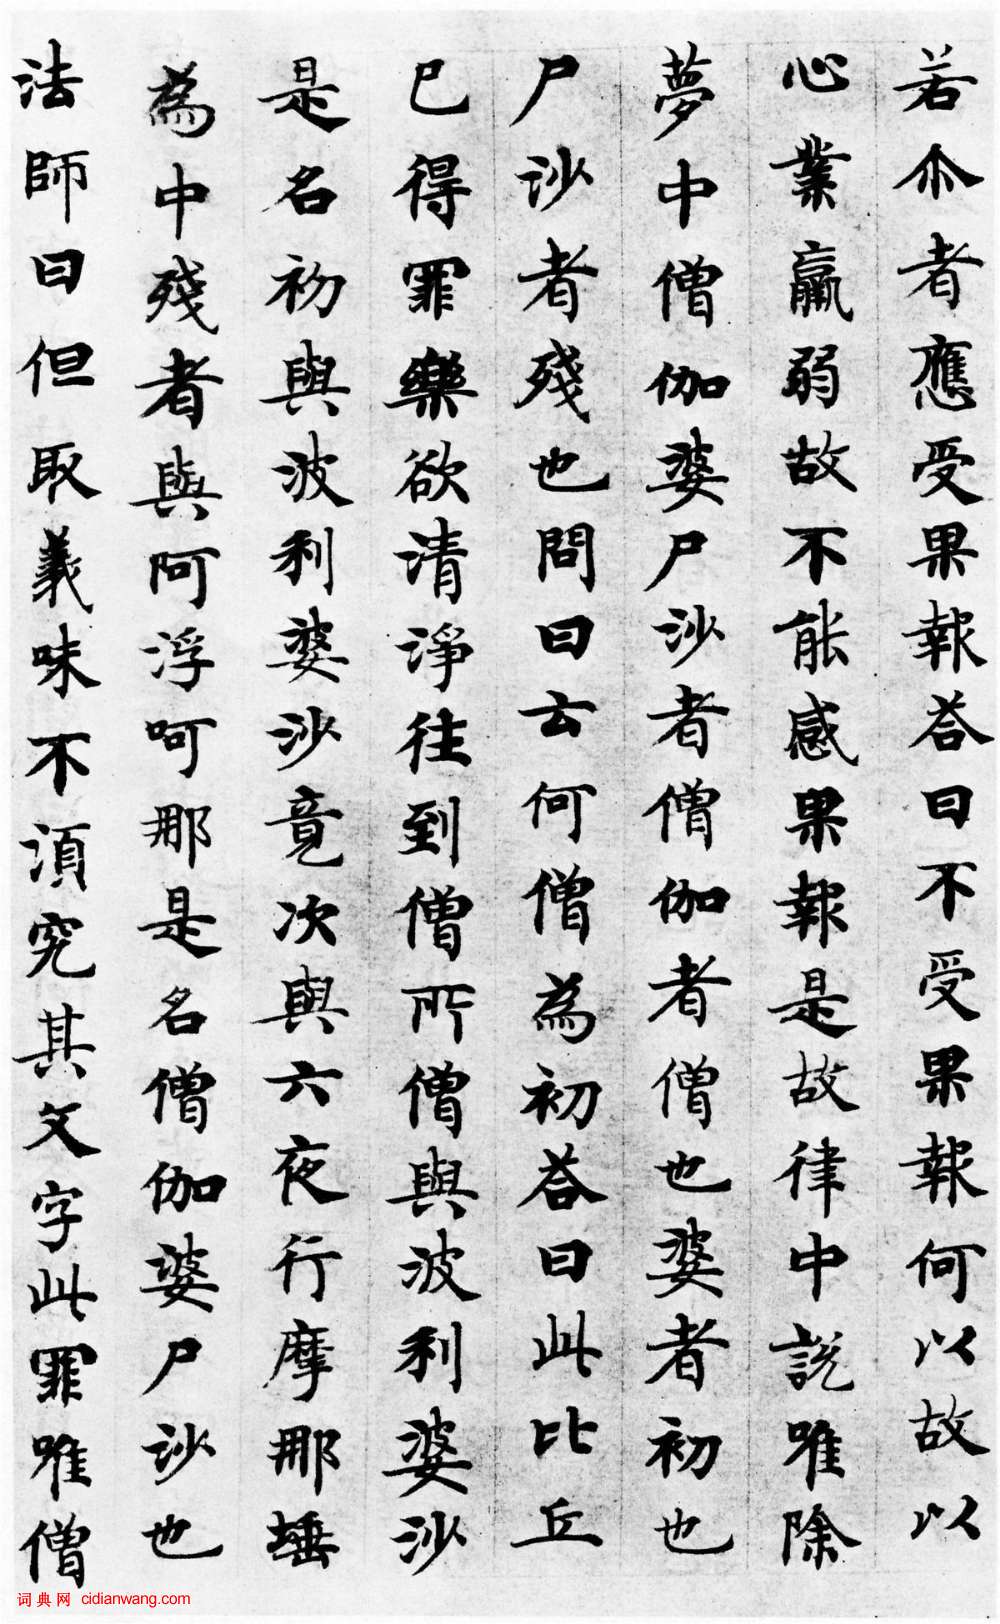 若尒者應受果報荅曰不受果報何以故以
心業羸弱故不能感果報是故律中說唯除
夢中僧伽婆尸沙者僧伽者僧也婆者初也
尸沙者殘也問曰云何僧為初荅曰此比丘
已得罪樂欲清淨往到僧所僧與波利婆沙
是名初與波利婆沙竟次與六夜行摩那埵
為中殘者與阿浮呵那是名僧伽婆尸沙也
法師曰但取義味不須究其文字此罪唯僧
词典网 cidianwang.com